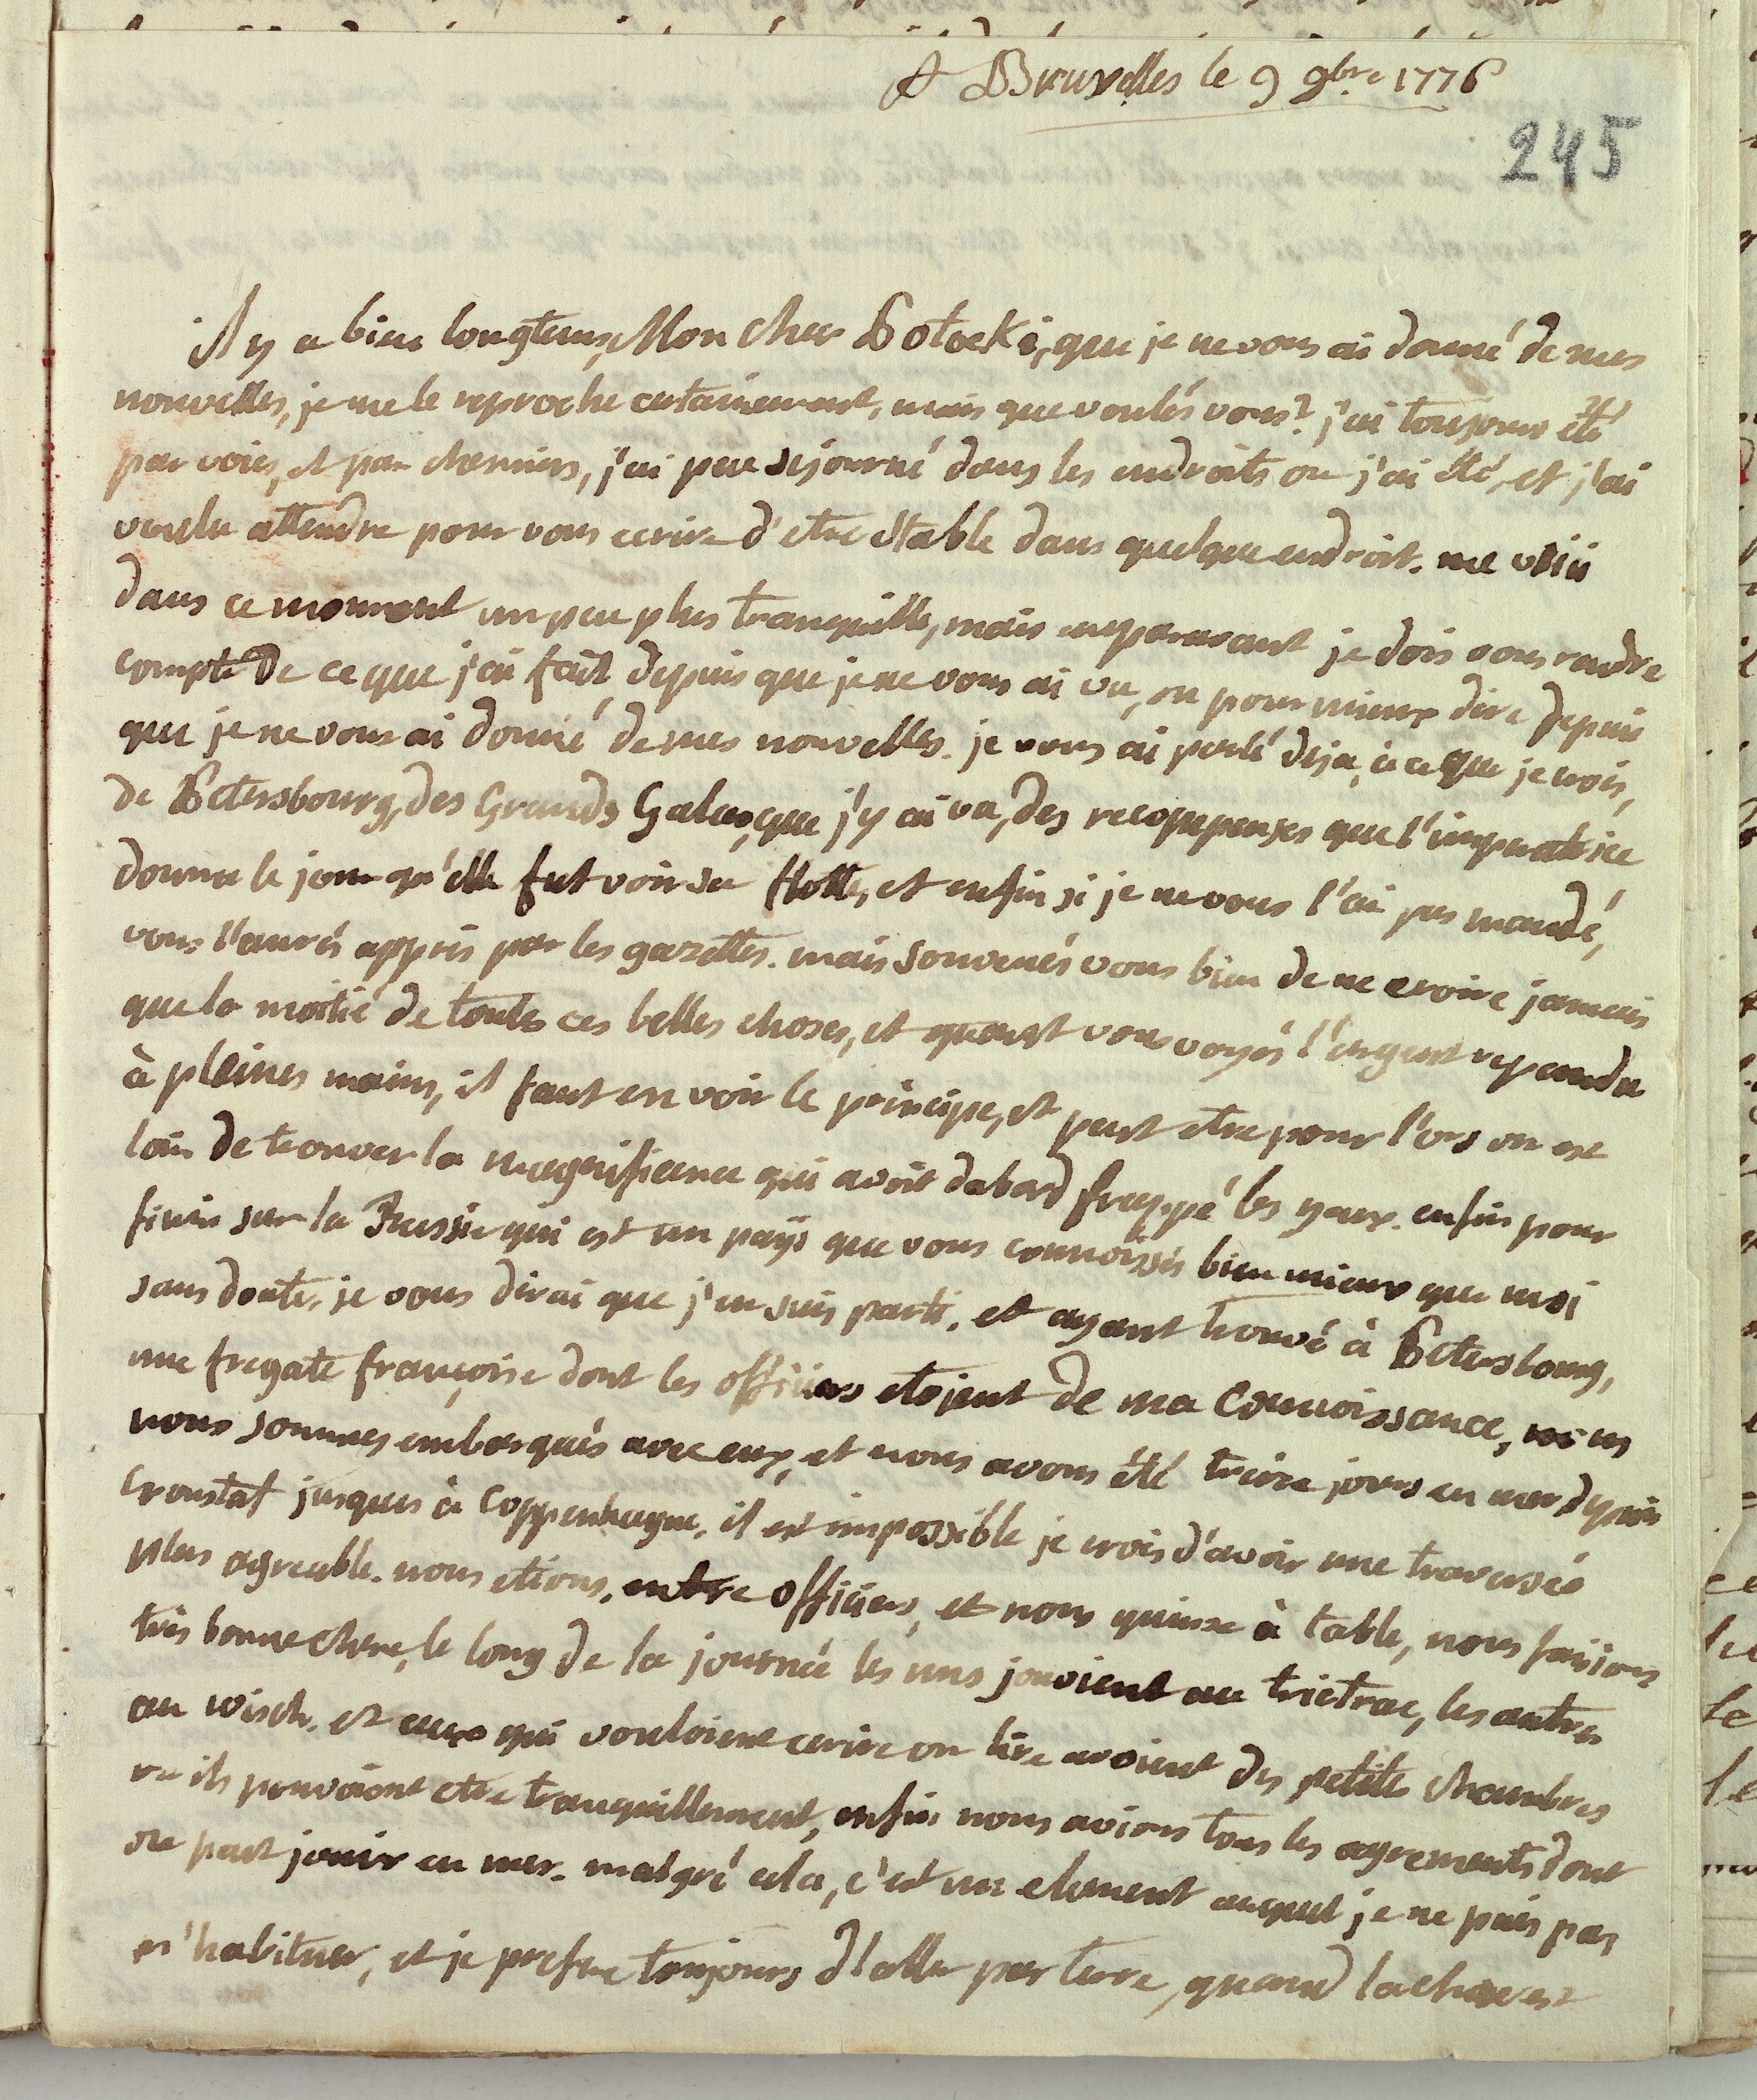 A Bruxelles le 9 9bre 1776
245
il y a bien longtems, Mon cher Potocki, que je ne vous ai donné de mes
nouvelles, je me le reproche certainement, mais que voulés vous? j'ai toujours été
par voies, et par chemins, j'ai peu sejourné dans les endroits ou j'ai été, et j'ai
voulu attendre pour vous ecrire d'etre stable dans quelque endroit. me voici
dans ce moment un peu plus tranquille, mais auparavant je dois vous rendre
compte de ce que j'ai fait depuis que je ne vous ai vu, ou pour mieux dire depuis
que je ne vous ai donné de mes nouvelles. je vous ai parlé deja, à ce que je crois,
de Petersbourg, des Grands Galas, que j'y ai vu, des recompenses que l'imperatrice
donna le jour qu'elle fut voir sa flotte, et enfin si je ne vous l'ai pas mandé,
vous l'aurés appris par les gazettes. mais souvenés vous bien de ne croire jamais
que la moitié de toutes ces belles choses, et quant vous voyés l'argent rependu
à pleines mains, il faut en voir le principe, et peut etre pour l'ors on est
loin de trouver la magnificence qui avoit dabord frappé les yeux. enfin pour
finir sur la Russie qui est un païs que vous connoissés bien mieux que moi
sans doute, je vous dirai que j'en suis parti. et ayant trouvé à Petersbourg,
une fregate françoise dont les officiers etojent de ma connoissance, nous nous
nous sommes embarqués avec eux, et nous avons été treize jours en mer depuis
Cronstat jusques à Coppenhague. il est impossible je crois d'avoir une traversée
plus agreable. nous etions, entre officiers, et nous quinze à table, nous faisions
très bonne chere, le long de la journée les uns jouoient au trictrac, les autres
au wisch, et ceux qui vouloient ecrire ou lire avoient des petites chambres
ou ils pouvoient etre tranquillement, enfin nous avions tous les agrements dont
on peut jouir en mer. malgré cela, c'est un element auquel je ne puis pas
m'habituer, et je prefere toujours d'aller par terre, quand la chose est